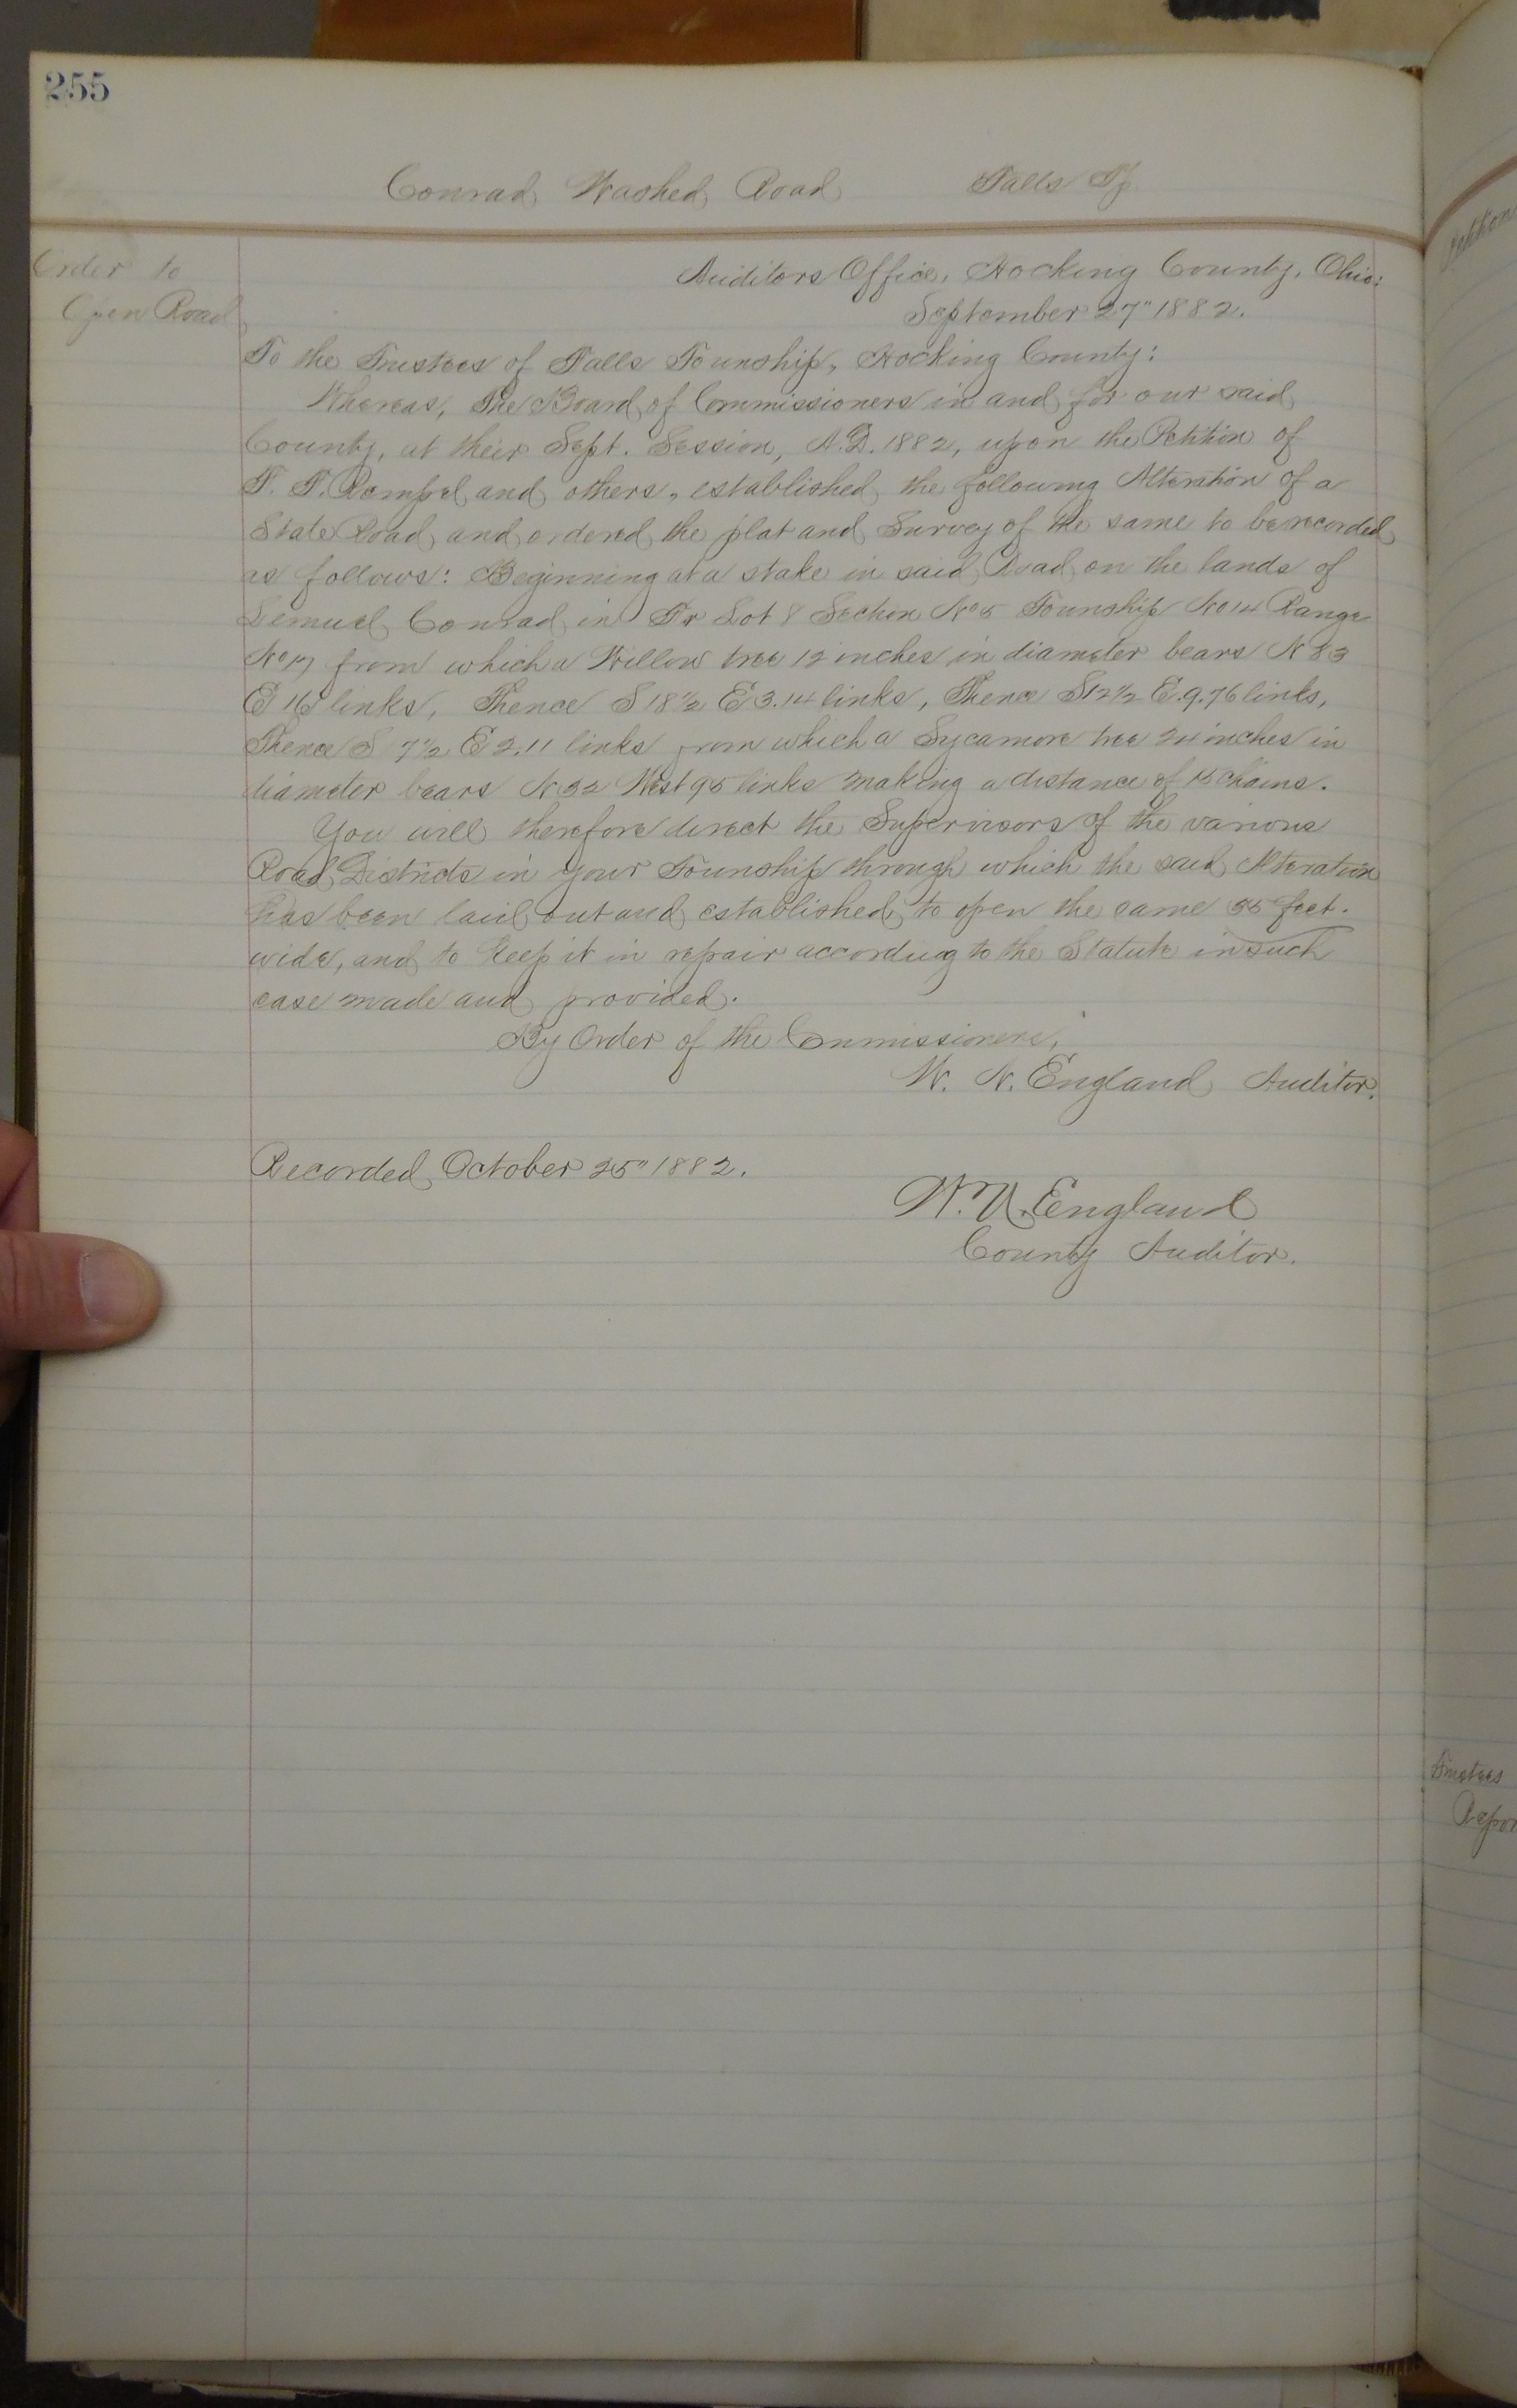 255
Conrad Washed Road Falls Tp
Order to
Open Road
Auditors Office, Hocking County, Ohio:
September 27" 1882.
To the Trustees of Falls Township, Hocking County:
Whereas, The Board of Commissioners in and for our said
County, at their Sept. Session, A.D. 1882, upon the Petition of
F. F. Rempel and others, established the following Alteration of a
State Road and ordered the plat and Survey of the same to be recorded
as follows: Beginning at a stake in said Road on the lands of
Lemuel Conrad in Fr Lot 8 Section No 5 Township No 14 Range
No 17 from which a Willow tree 12 inches in diameter bears N 83
E 16 links, Thence S 18 1/2 E 3.14 links, Thence S 12 1/2 E. 9.76 links,
Thence S 7 1/2 E 2.11 links from which a Sycamore tree 24 inches in
diameter bears N 32 West 95 links making a distance of 15 Chains.
You will therefore direct the Supervisors of the various
Road Districts in your Township through which the said Alteration
has been laid out and established, to open the same feet.
wide, and to keep it in repair according to the Statute in such
case made and provided.
By Order of the Commissioners,
W. N. England Auditor.
Recorded October 25" 1882.
W. N. England
County Auditor.
Petition
Trustees
Repor